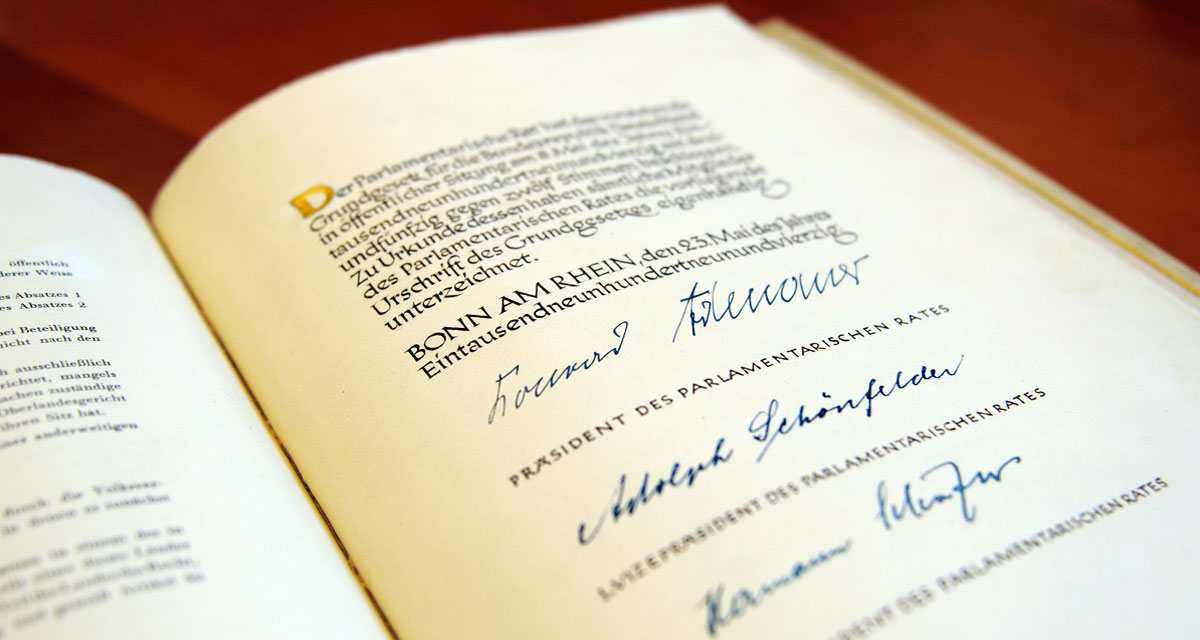 öffentlich
derer Weise
es Absatzes 1
es Absatzes 2
bei Beteiligung
nicht nach den
h ausschließlich
richtet, mangels
achen zuständige
Oberlandesgericht
ihren Sitz hat.
iner anderweitigen
durch die
in denen es zunächst
in einem der in
oder eines ihnen Länder
und gemäß Artikel
Der Parlamentarische Rat hat das vorstehende
Grundgesetz für die Bundesrepublik Deutschland
in öffentlicher Sitzung am 8. Mai des Jahres Ein-
tausendneunhundertneunundvierzig mit drei-
undfünfzig gegen zwölf Stimmen beschlossen.
Zu Urkunde dessen haben sämtliche Mitglieder
des Parlamentarischen Rates die vorliegende
Urschrift des Grundgesetzes eigenhändig
unterzeichnet.
BONN AM RHEIN, den 23. Mai des Jahres
Eintausendneunhundertneunundvierzig.
Konrad Adenauer
PRÆSIDENT DES PARLAMENTARISCHEN RATES
Adolph Schönfelder
I. VIZEPRÆSIDENT DES PARLAMENTARISCHEN RATES
Hermann Schäfer
DENT DES PARLAMENTARISCHEN RATES